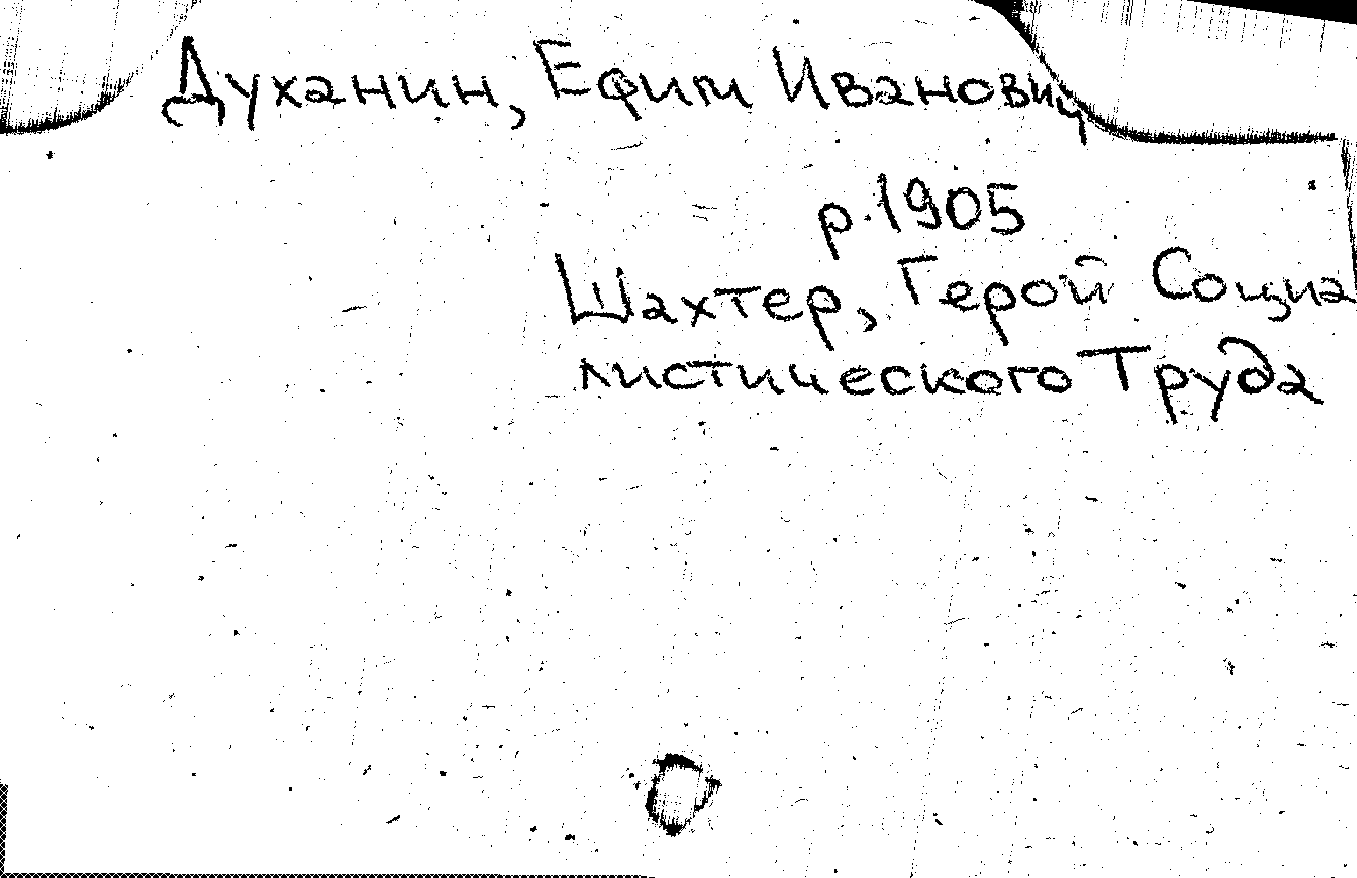 Духанин, Ефим Иванович
р. 1905
Шахтер, Герой Социа
листического Труда